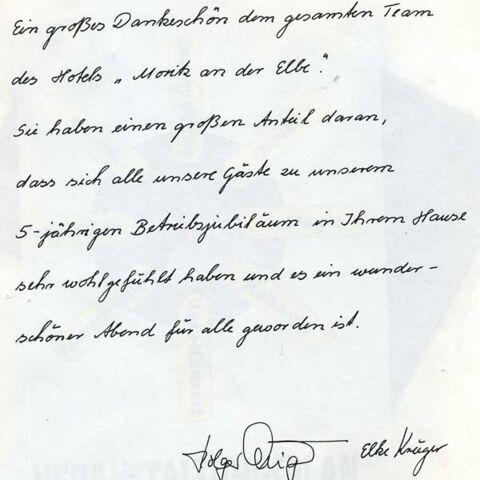 Ein großes Dankeschön dem gesamten Team
des Hotels „Moritz an der Elbe“.
Sie haben einen großen Anteil daran,
dass sich alle unsere Gäste zu unserem
5-jährigen Betriebsjubiläum in Ihrem Hause
sehr wohlgefühlt haben und es ein wunder-
schöner Abend für alle geworden ist.
Holger Elke Krüger